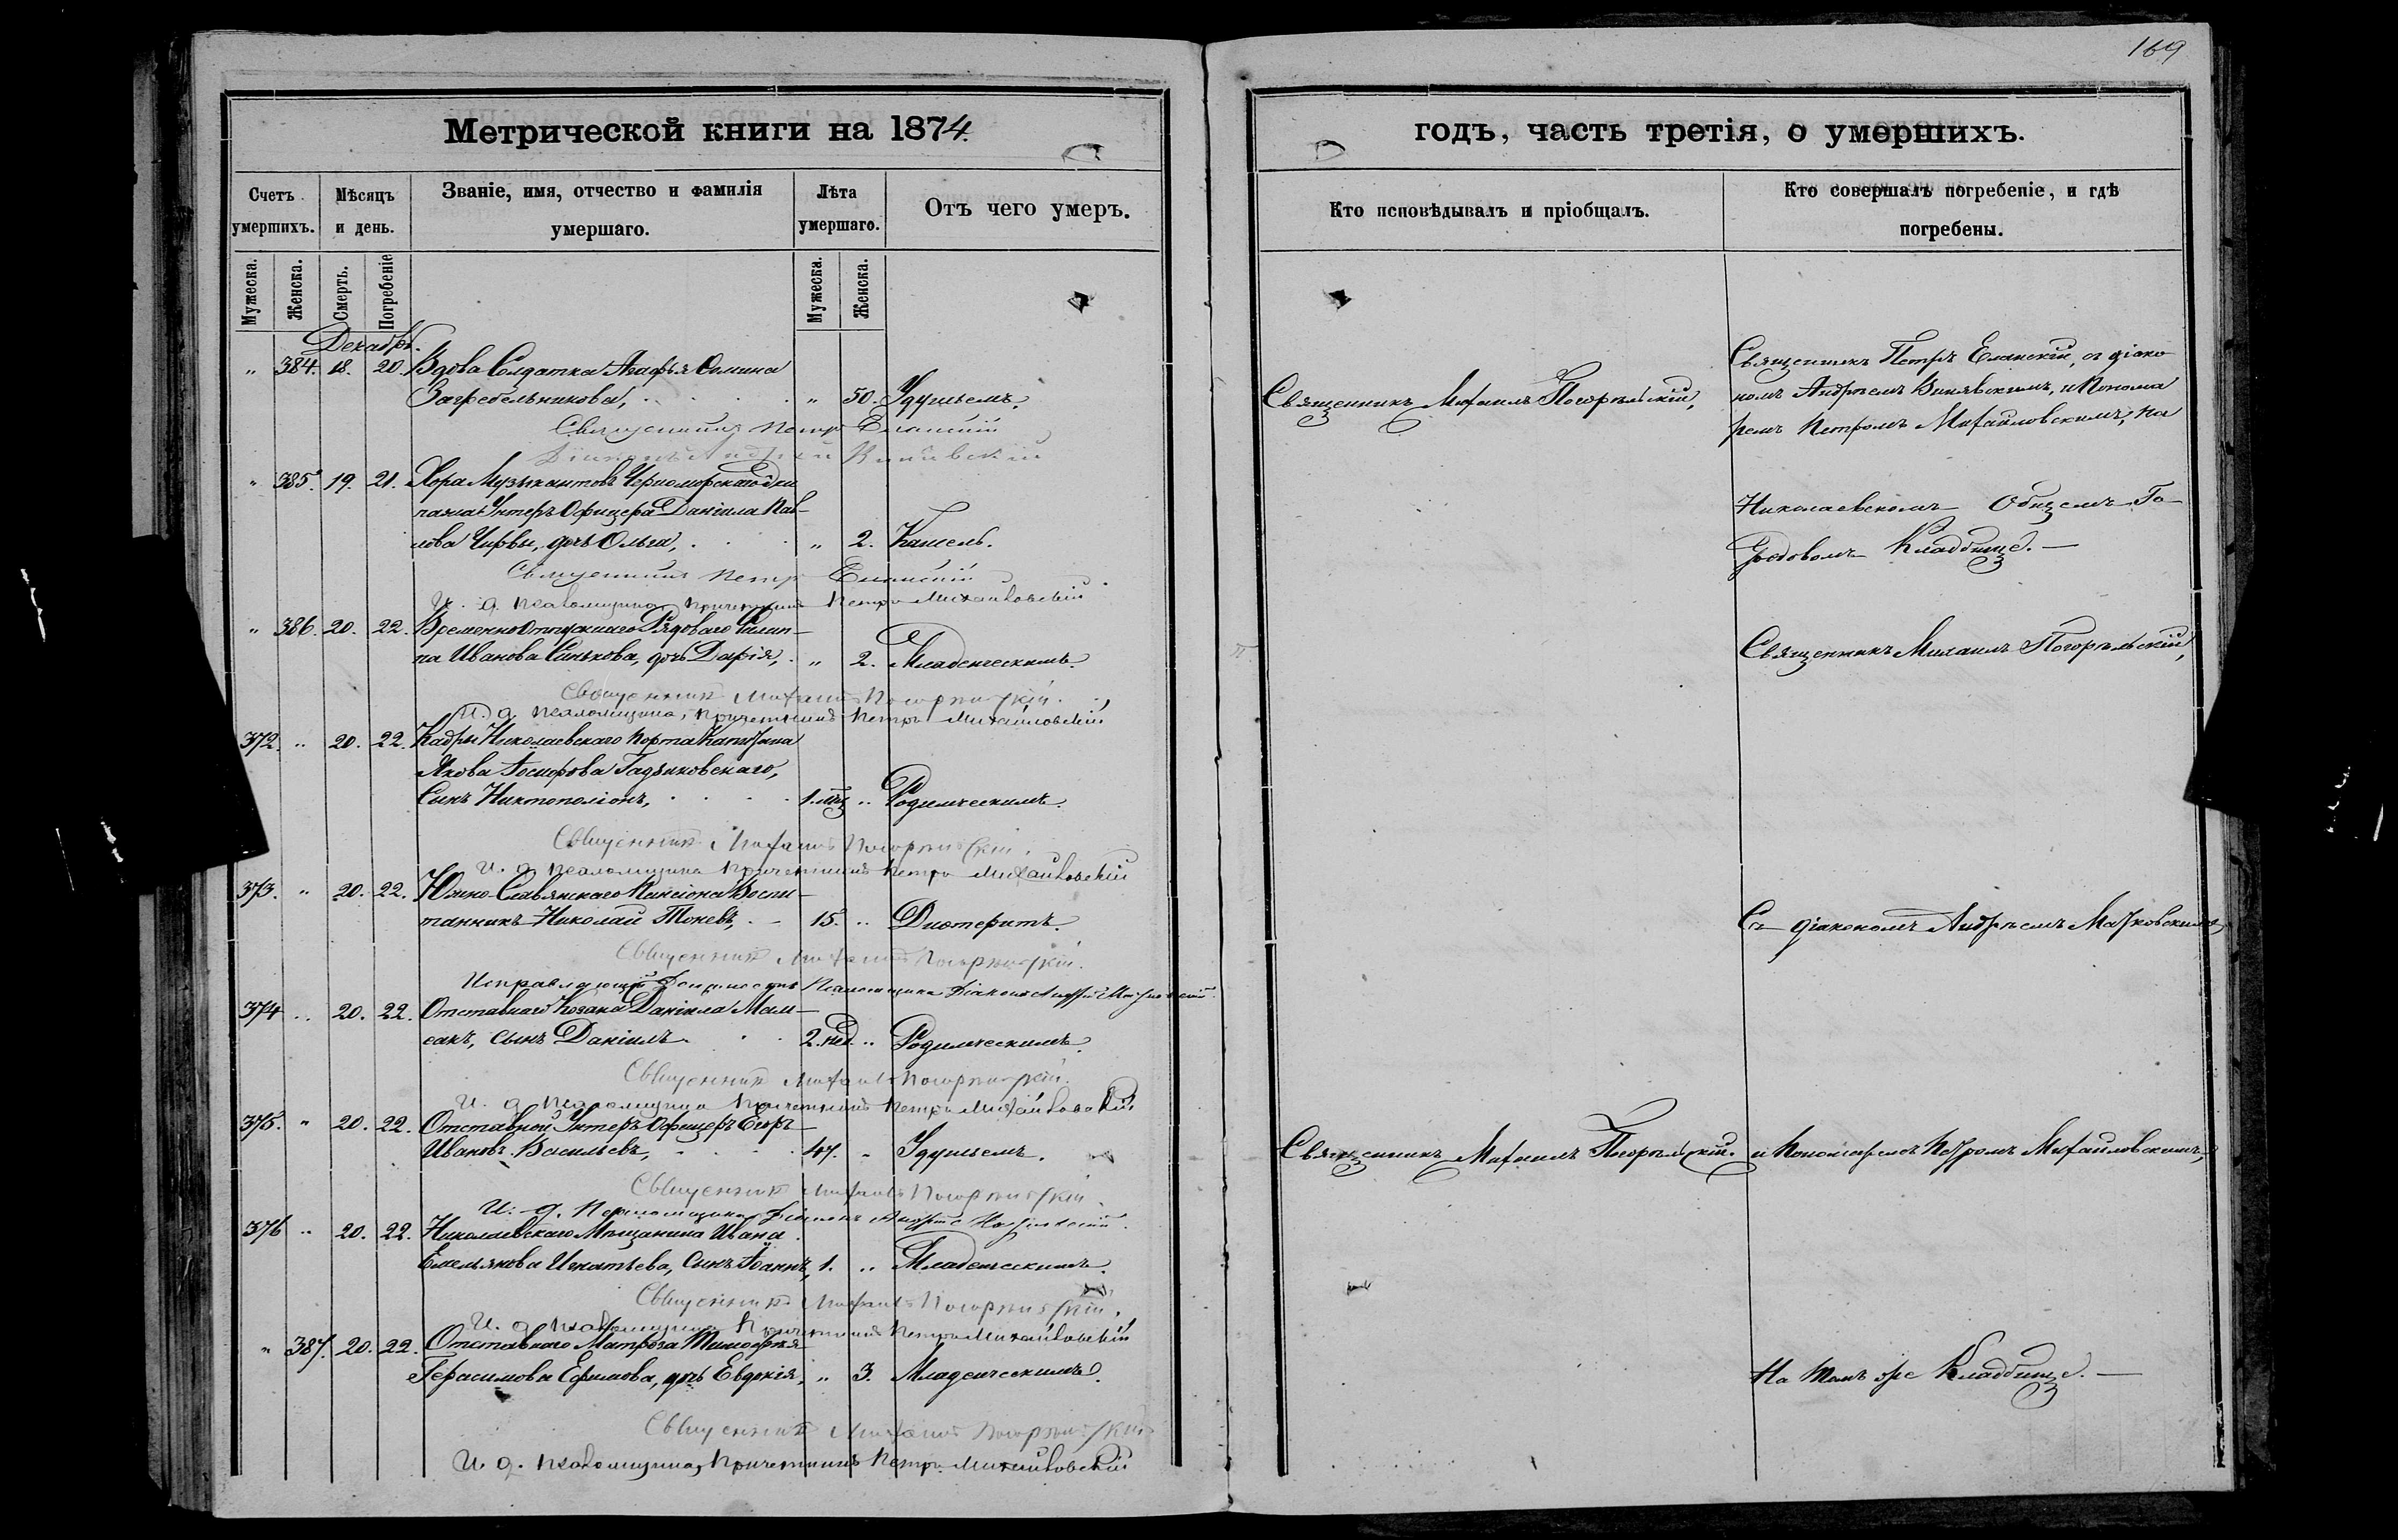 169
Метрической книги на 1874
годъ, часть третія, о умершихъ.
Счетъ умершихъ.
Мѣсяцъ и день.
Званіе, имя, отчество и фамилія умершаго.
Лѣта умершаго.
Отъ чего умеръ.
Кто исповѣдывалъ и пріобщалъ.
Кто совершалъ погребеніе, и гдѣ погребены.
Мужеска.
Женска.
Смерть.
Погребеніе
Мужеска.
Женска.
Декабрь.
" 384. 18. 20. Вдова Солдатка Агафья Фомина
Загребельникова, " 50. Удушьемъ.
Священникъ Петръ Еланскій
Діаконъ Андрей
" 385. 19. 21. Хора Музыкантовъ Черноморскаго Эки
пажа Унтеръ Офицера Даніила Пав-
лова Чирвы, дочь Ольга, " 2. Кашель.
Священникъ Петръ Еланскій
И. д. псаломщика причетникъ Петръ Михайловскій
" 386. 20. 22. Временно отпускнаго Рядоваго Филип-
па Иванова Синькова, дочь Дарія, " 2. Младенческимъ.
Священникъ Михаилъ Погорѣльскій.
И. д. псаломщика, причетникъ Петръ Михайловскій
372. " 20. 22. Кадры Николаевскаго Порта Капитана
Якова Іосифова Гадзяковскаго,
Сынъ Никтополіонъ, 1. мѣц " Родимческимъ.
Священникъ Михаилъ Погорѣльскій.
И. д. псаломщика причетникъ Петръ Михайловскій
373. " 20. 22. Южно-Славянскаго Пансіона Воспи-
танникъ Николай Тоневъ, 15. " Дифтеритъ.
Священникъ Михаилъ Погорѣльскій.
Исправляющій должность Псаломщика Діаконъ Андрей
374 " 20. 22. Отставнаго Козака Даніила Мам-
сакъ, сынъ Даніилъ 2. нед. " Родимческимъ.
Священникъ Михаилъ Погорѣльскій.
И. д. псаломщика причетникъ Петръ Михайловскій
375. " 20. 22. Отставной Унтеръ Офицеръ Егоръ
Ивановъ Васильевъ, 47. " Удушьемъ.
Священникъ Михаилъ Погорѣльскій.
И. д. Псаломщика Діаконъ Андрей
376 " 20. 22. Николаевскаго Мѣщанина Ивана
Емельянова Игнатьева, сынъ Іоаннъ, 1. " Младенческимъ.
Священникъ Михаилъ Погорѣльскій.
И. д. псаломщика Причетникъ Петръ Михайловскій
" 387. 20. 22. Отставнаго Матроса Тимофея
Герасимова Ефимова, дочь Евдокія, " 3. Младенческимъ.
Священникъ Михаилъ Погорѣльскій
И. д. псаломщика, Причетникъ Петръ Михайловскій
Священникъ Михаилъ Погорѣльскій,
Священникъ Михаилъ Погорѣльскій.
Священникъ Петръ Еланскій, съ діако
номъ Андреемъ Винявскимъ, и Понома
ремъ Петромъ Михайловскимъ, на
Николаевскомъ Общемъ Го-
родовомъ Кладбищѣ. —
Священникъ Михаилъ Погорѣльскій,
Съ діакономъ Андреемъ Марковскимъ,
и Пономаремъ Петромъ Михайловскимъ,
На томъ же Кладбищѣ. —